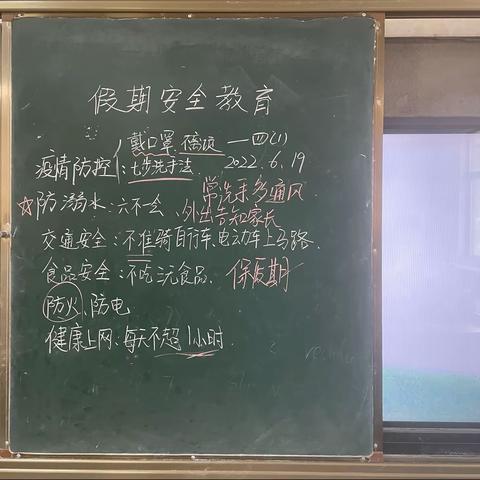 假期安全教育
戴口罩 —四(1)
疫情防控:七步洗手法 2022.6.19
常洗手多通风
☆防溺水:六不一会、外出告知家长
交通安全:不准骑自行车、电动车上马路.
食品安全:不吃三无食品、保质期
防火、防电
健康上网:每天不超1小时.